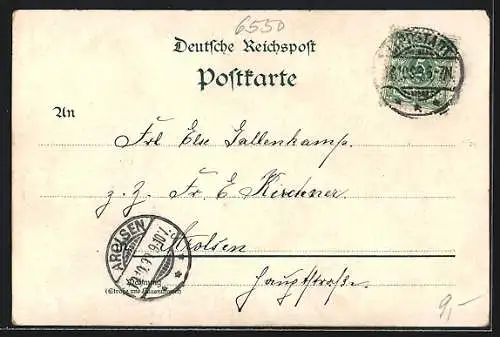 6550
Deutsche Reichspost
Postkarte
An
Frl Else Gallenkamp.
z. Z. Fr. E Kirchner
Arolsen
AROLSEN
Wohnung
(Straße und Hausnummer)
Hauptstraße.
9,-